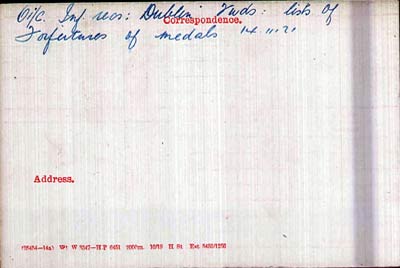 O i/c. Inf. recs: Dublin fwds: lists of
Correspondence.
Forfeitures of medals 14.11.21
Address.
(35454—14a) Wt W 5347—H P 6451 2000m. 10/19 H St Est 5480/1250